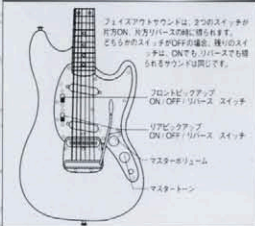 フェイズアウトサウンドは、2つのスイッチが
片方ON、片方リバースの時に得られます。
どちらかのスイッチがOFFの場合、残りのスイッ
チは、ONでも、リバースでも得
られるサウンドは同じです。
フロントピックアップ
ON/OFF/リバース スイッチ
リアピックアップ
ON/OFF/リバース スイッチ
マスターボリューム
マスタートーン